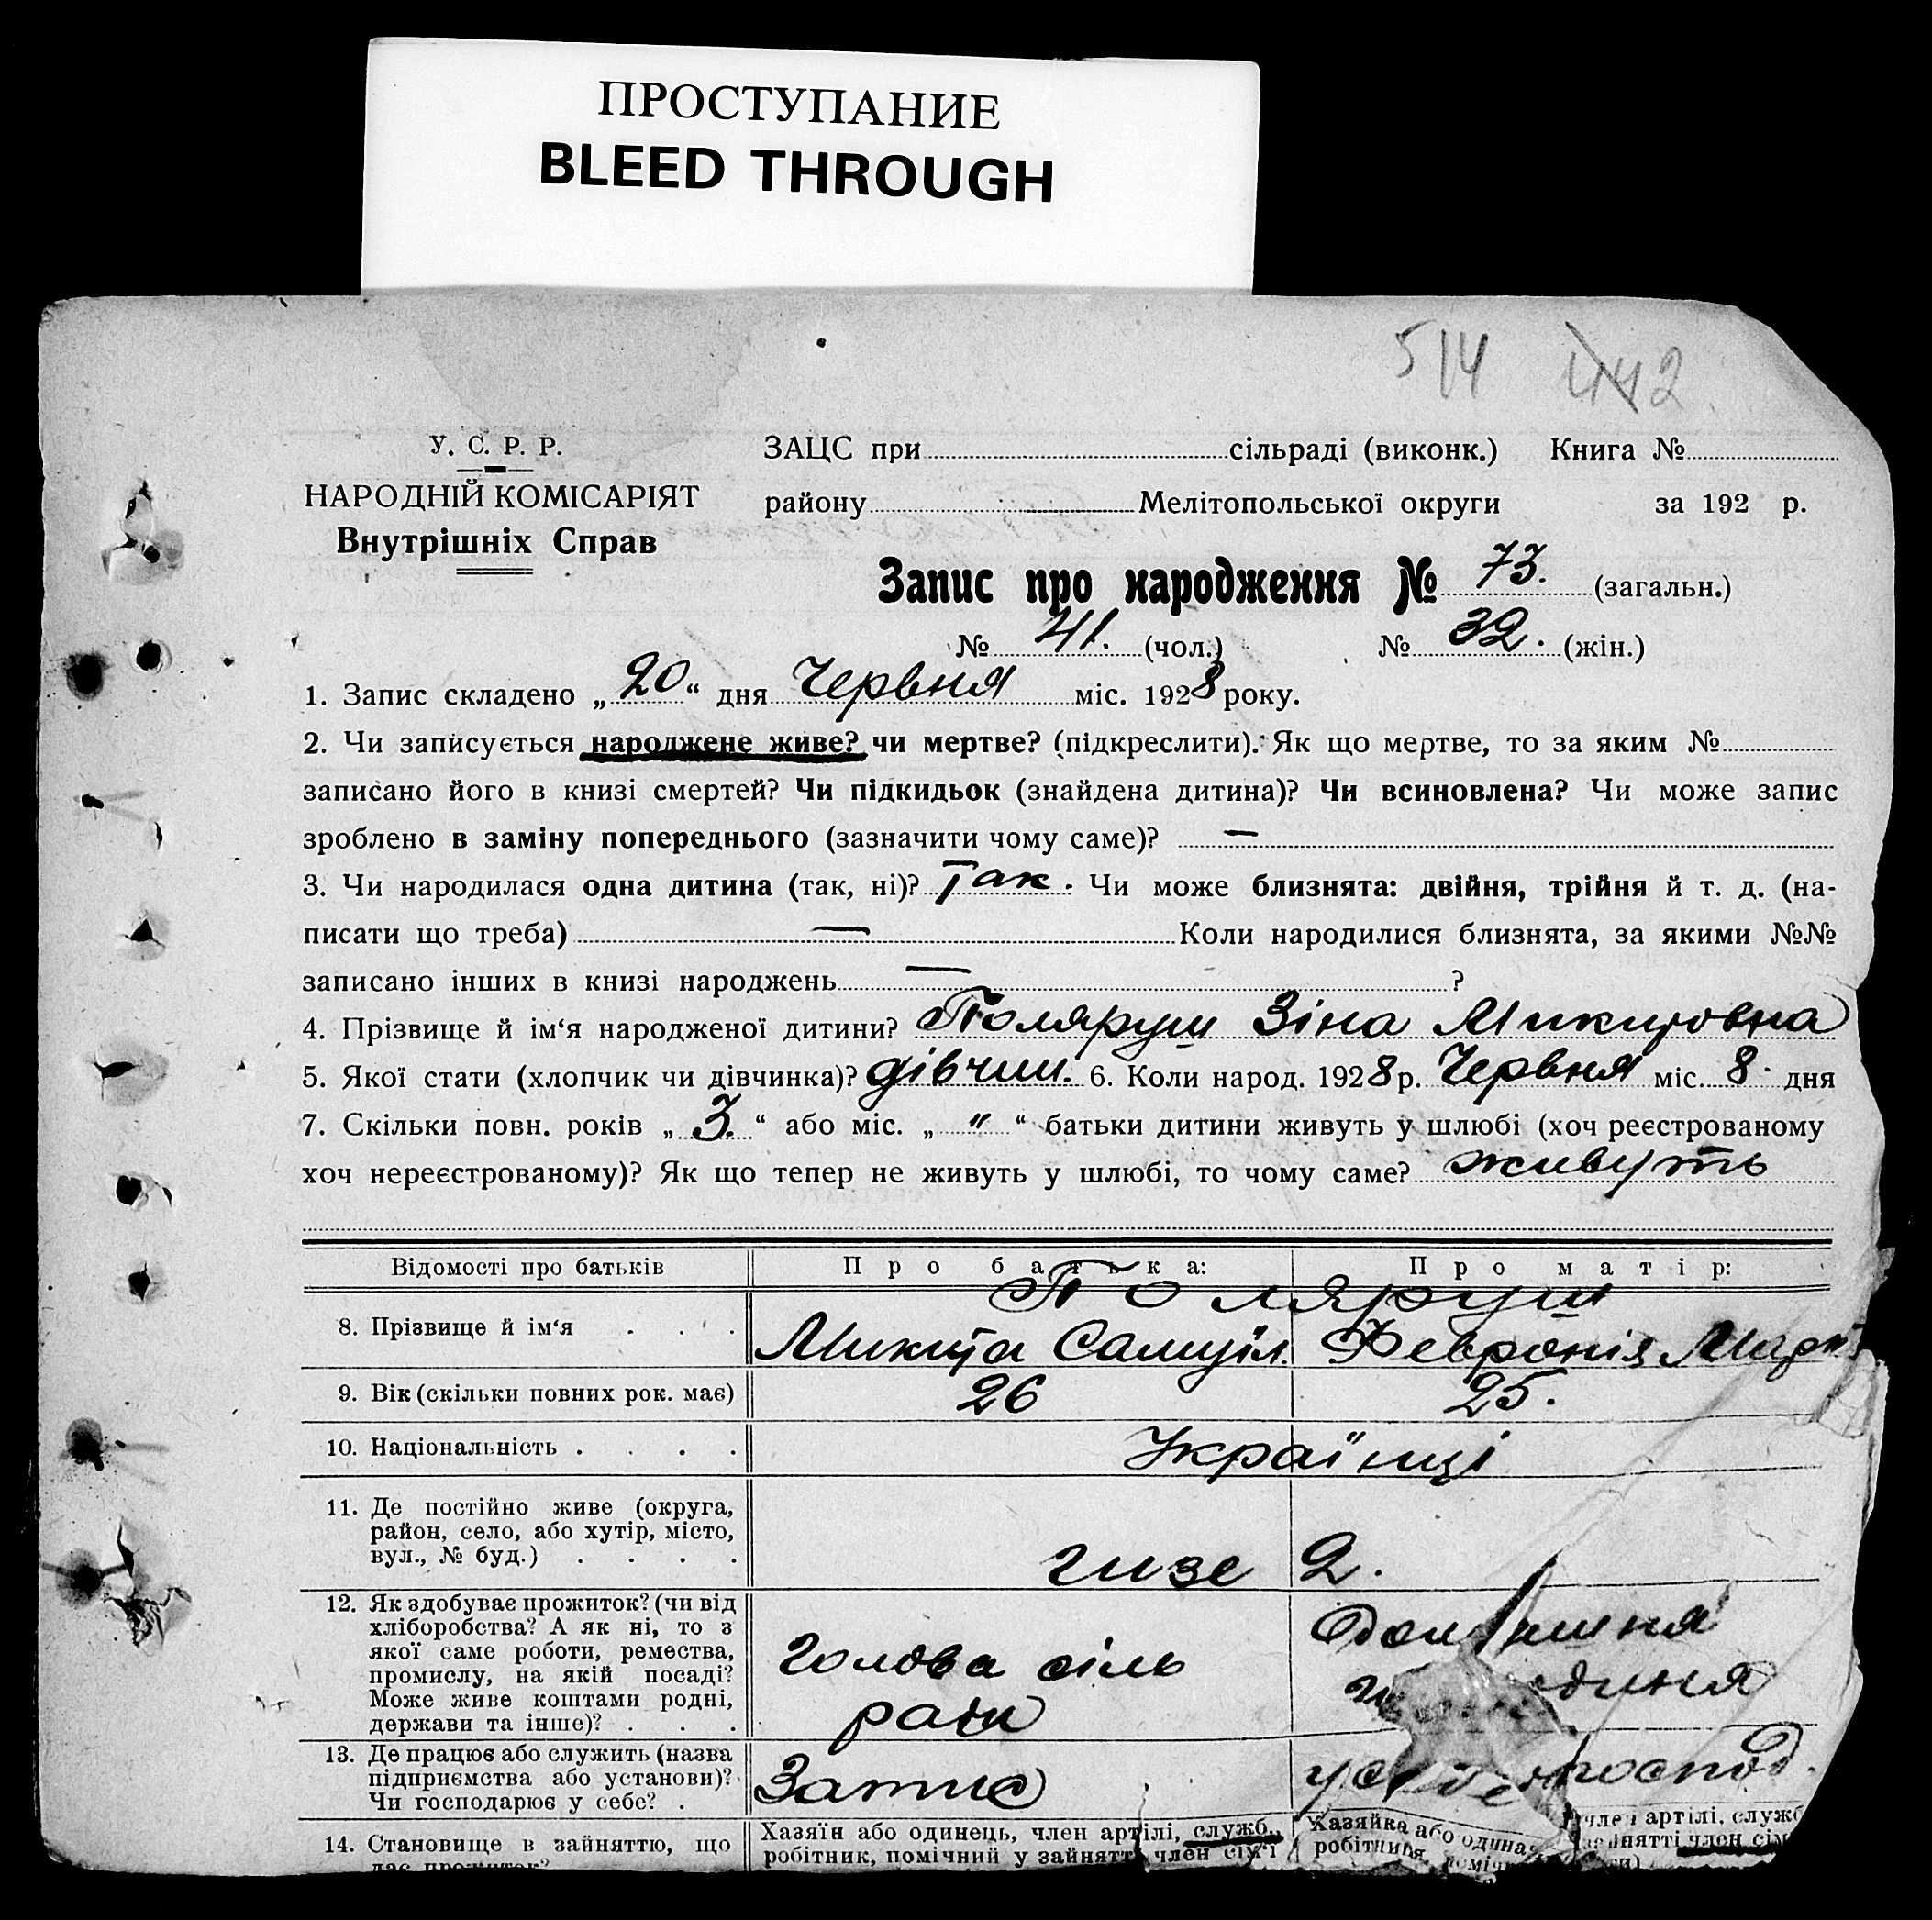 ПРОСТУПАНИЕ
BLEED THROUGH
514 442
У. С. Р. Р.
НАРОДНІЙ КОМІСАРІЯТ
Внутрішніх Справ
ЗАЦС при сільраді (виконк.) Книга №
району Мелітопольської округи за 192 р.
Запис про народження № 73. (загальн.)
№ 41. (чол.) № 32. (жін.)
1. Запис складено „20“ дня Червня міс. 1928 року.
2. Чи записується народжене живе? чи мертве? (підкреслити). Як що мертве, то за яким №
записано його в книзі смертей? Чи підкидьок (знайдена дитина)? Чи всиновлена? Чи може запис
зроблено в заміну попереднього (зазначити чому саме)? —
3. Чи народилася одна дитина (так, ні)? Так. Чи може близнята: двійня, трійня й т. д. (на-
писати що треба) — Коли народилися близнята, за якими №№
записано інших в книзі народжень — ?
4. Прізвище й ім‘я народженої дитини? Поляруш Зіна Микитовна
5. Якої стати (хлопчик чи дівчинка)? дівчин. 6. Коли народ. 1928 р. Червня міс. 8. дня
7. Скільки повн. років „3.“ або міс. „ " “ батьки дитини живуть у шлюбі (хоч реєстрованому
хоч нереєстрованому)? Як що тепер не живуть у шлюбі, то чому саме? живуть
Відомості про батьків Про батька: Про матір:
Поляруш
8. Прізвище й ім‘я . . . Микита Самуїл. Февронія Марк
9. Вік (скільки повних рок. має) 26 25.
10. Національність . . . . Українці
11. Де постійно живе (округа,
район, село, або хутір, місто,
вул., № буд.) . . . . 2.
12. Як здобуває прожиток? (чи від
хліборобства? А як ні, то з
якої саме роботи, ремества,
промислу, на якій посаді?
Може живе коштами родні,
держави та інше)? . . .
Голова сіль
ради
Домашня
13. Де працює або служить (назва
підприємства або установи)?
Чи господарює у себе? .
14. Становище в зайняттю, що
дає прожиток?
Хазяїн або одинець, член артілі, служб.,
робітник, помічний у зайнятті член сім'ї
Хазяйка або одинач
робітниця,
член артілі, служб
зайнятті член сім